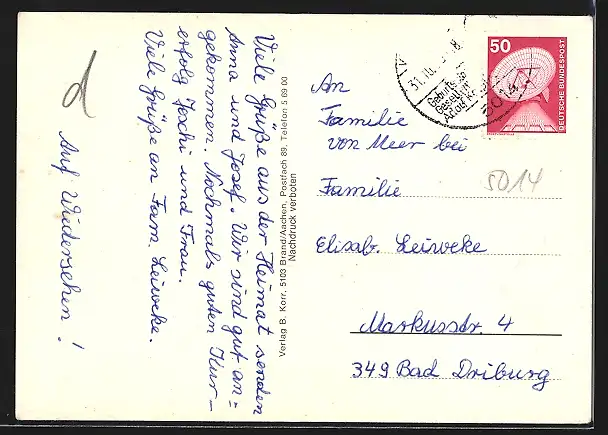 Viele Grüße aus der Heimat senden
Anna und Josef. Wir sind gut an=
gekommen. Nochmals guten Kur-
erfolg Joschi und Frau.
Viele Grüße an Fam. Leiweke.
Auf Wiedersehen!
d
Verlag B. Korr, 5103 Brand/Aachen, Postfach 89, Telefon 5 69 00
Nachdruck verboten
50
DEUTSCHE BUNDESPOST
31.10.
8
Geburts-
5014
An
Familie
von Meer bei
5014
Familie
Elisab. Leiweke
Markusstr. 4
349 Bad Driburg